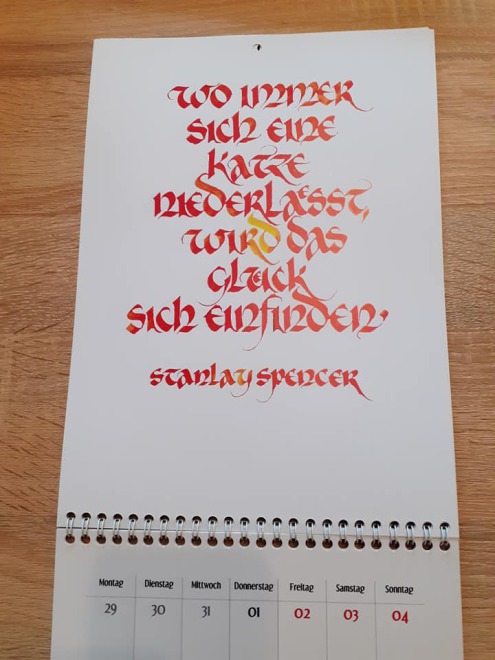 WO IMMER
SICH EINE
KATZE
NIEDERLÆSST,
WIRD DAS
GLUECK
SICH EINFINDEN
STANLAY SPENCER
Montag Dienstag Mittwoch Donnerstag Freitag Samstag Sonntag
29 30 31 01 02 03 04